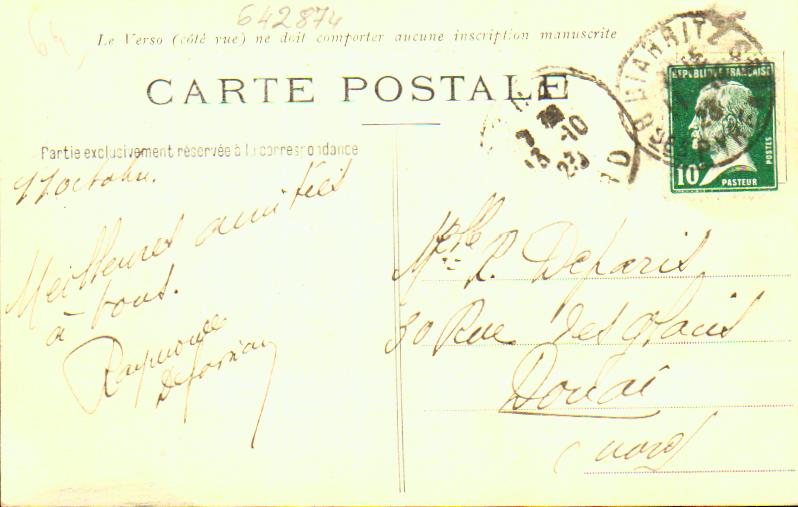 642874
64
Le Verso (côté vue) ne doit comporter aucune inscription manuscrite
CARTE POSTALE
BIARRITZ
RÉPUBLIQUE FRANÇAISE
10
POSTES
PASTEUR
10
23
Partie exclusivement réservée à la correspondance
octobre.
Meilleures amitiés
à tous.
Raymonde
Mlle R. Deparis
30 Rue des
Douai
(Nord)